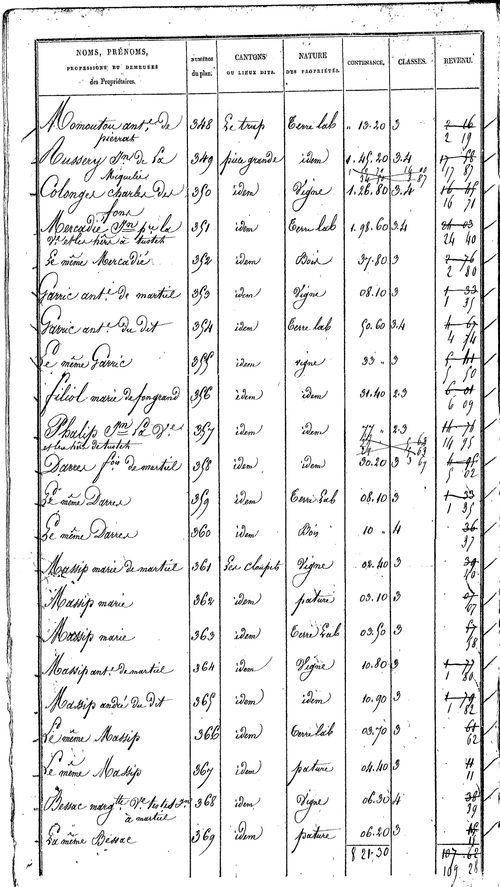 NOMS, PRÉNOMS, PROFESSIONS ET DEMEURES des Propriétaires. NUMÉROS du plan. CANTONS OU LIEUX DITS. NATURE DES PROPRIÉTÉS. CONTENANCE. CLASSES. REVENU.
Momoutou ant.e de 348 Le trup Terre lab " 13.20 3 2 16
pierrat 2 19
Nussery de la 349 piece grande idem 1.45.20 3.4 17 58
17 87
Colonges charles des 350 idem Vigne 1.26.80 3.4 16 45
fons 16 71
Mercadié p.re la 351 idem Terre lab 1.98.60 3.4 24 03
24 40
Le même Mercadié 352 idem Bois 37.80 3 2 76
2 80
Garric ant.e de martiel 353 idem Vigne 08.10 3 1 33
1 35
Garric ant.e du dit 354 idem Terre lab 50.60 3.4 4 67
4 74
Le même Garric 355 idem vigne 33 " 3 5 41
5 50
filiol marie de fongrand 356 idem idem 31.40 2.3 6 01
6 09
Phalip 357 idem idem 77 " 2.3 14 78
14 95
Darres fois de martiel 358 idem idem 30.20 3 4 95
5 02
Le même Darres 359 idem Terre Lab 08.10 3 1 33
1 35
Le même Darres 360 idem Bois 10 " 4 36
37
Massip marie de martiel 361 Les cloupets Vigne 02.40 3 39
40
Massip marie 362 idem pature 03.10 3 07
Massip marie 363 idem Terre Lab 03.50 3 57
58
Massip ant. de martiel 364 idem Vigne 10.80 3 1 77
1 80
Massip andré du dit 365 idem idem 10.90 3 1 79
1 82
Le même Massip 366 idem Terre lab 03.70 3 61
62
Le même Massip 367 idem pature 04.40 3 11
11
Bessac marg.te 368 idem Vigne 06.30 4 38
à martiel 39
La même Bessac 369 idem pature 06.20 3 15
8 21.30 107 62
109 28